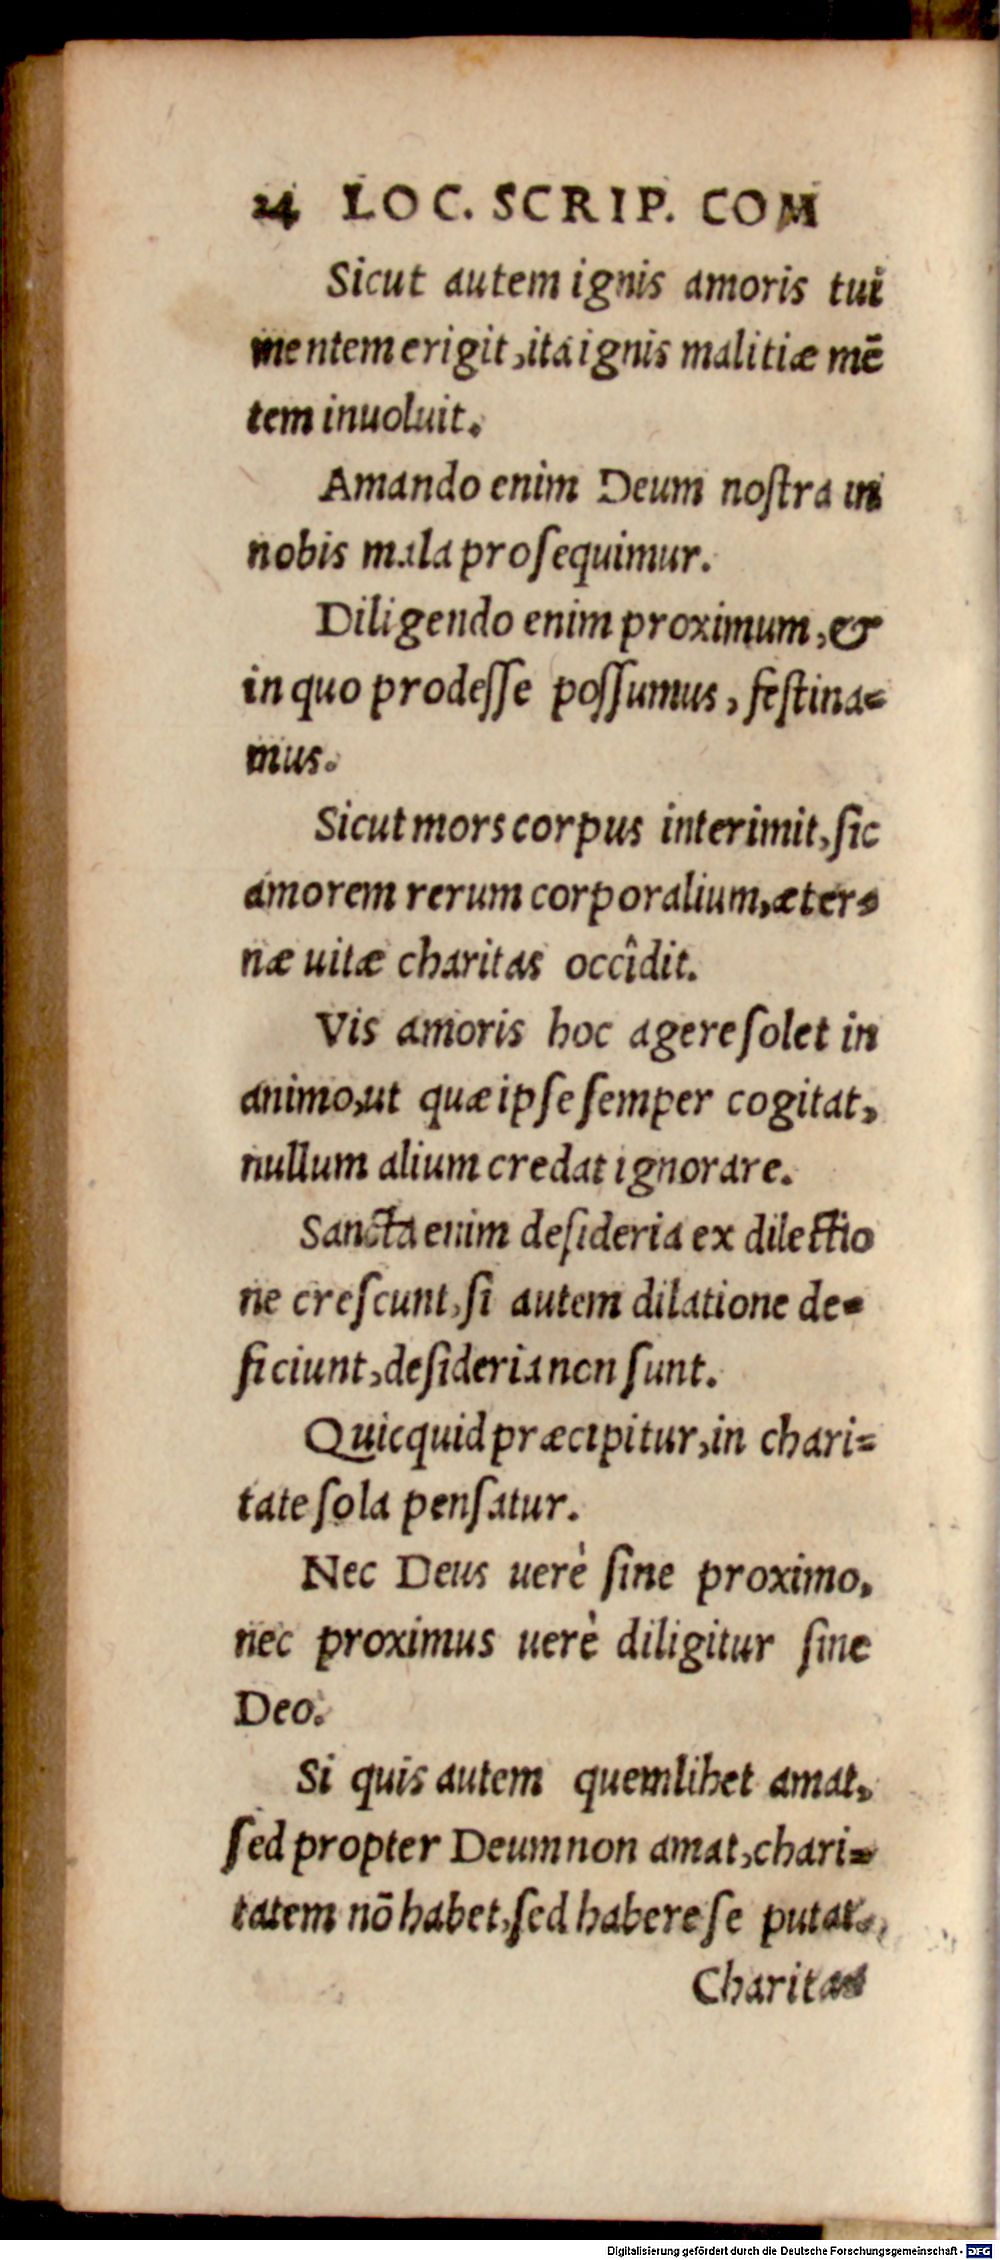 24 LOC. SCRIP. COM
Sicut autem ignis amoris tui
mentem erigit, ita ignis malitiæ mē
tem inuoluit.
Amando enim Deum noſtra in
nobis mala proſequimur.
Diligendo enim proximum, &
in quo prodeſſe poſſumus, feſtina=
mus.
Sicut mors corpus interimit, ſic
amorem rerum corporalium, æter=
næ uitæ charitas occîdit.
Vis amoris hoc agere ſolet in
animo, ut quæ ipſe ſemper cogitat,
nullum alium credat ignorare.
Sancta enim deſideria ex dilectio
ne creſcunt, ſi autem dilatione de=
ficiunt, deſideria non ſunt.
Quicquid præcipitur, in chari=
tate ſola penſatur.
Nec Deus uerè ſine proximo,
nec proximus uerè diligitur ſine
Deo.
Si quis autem quemlibet amat,
ſed propter Deum non amat, chari=
tatem nō habet, ſed habere ſe putat.
Charitas
Digitalisierung gefördert durch die Deutsche Forschungsgemeinschaft - DFG